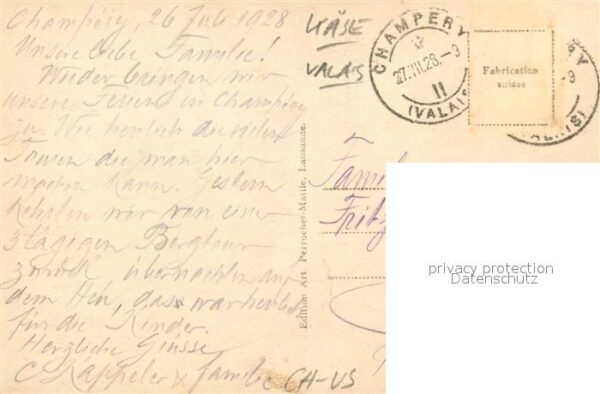 Champéry, 26 Juli 1928
Unsere liebe Familie!
Wieder bringen wir
unsere Ferien in Champéry
zu. Wie herlich die vielen
Touren die man hier
machen kann. Gestern
kehrten wir von einer
3 tägigen Bergtour
zurück übernachten auf
dem Heu, das war herlich
für die Kinder.
Herzliche Grüsse
C. Kappeler & familie
KÄSE
VALAIS
CHAMPERY
27.VII.28.-9
11
(VALAIS)
Fabrication
suisse
Y
-9
ALAIS)
Edition Art. Perrochet-Matile, Lausanne.
Famil
Fritz
privacy protection
Datenschutz
CH-VS